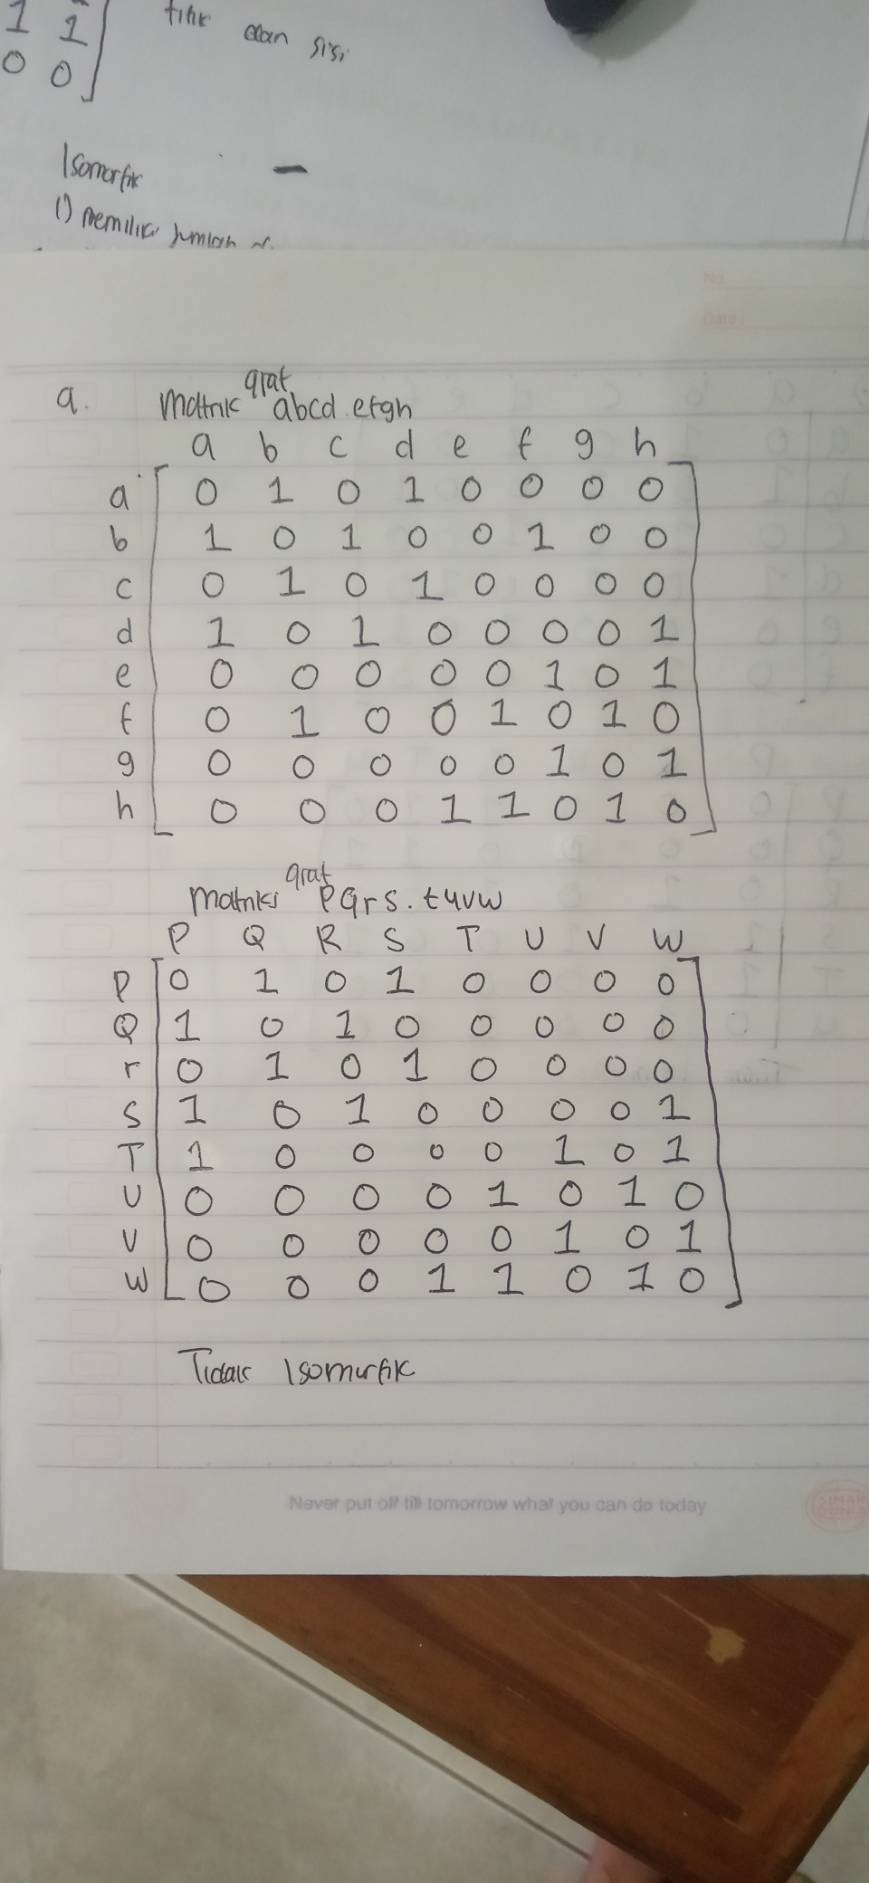 1 1
0 0
titik dan sisi
Isomorfik
1) memiliki jumlah
No.
Date:
a. Matrik graf abcd.efgh
a b c d e f g h
a 0 1 0 1 0 0 0 0
b 1 0 1 0 0 1 0 0
c 0 1 0 1 0 0 0 0
d 1 0 1 0 0 0 0 1
e 0 0 0 0 0 1 0 1
f 0 1 0 0 1 0 1 0
g 0 0 0 0 0 1 0 1
h 0 0 0 1 1 0 1 0
matriks graf PQrs.tuvw
P Q R S T U V W
P 0 1 0 1 0 0 0 0
Q 1 0 1 0 0 0 0 0
r 0 1 0 1 0 0 0 0
S 1 0 1 0 0 0 0 1
T 1 0 0 0 0 1 0 1
U 0 0 0 0 1 0 1 0
V 0 0 0 0 0 1 0 1
W 0 0 0 1 1 0 1 0
Tidak Isomorfik
Never put off till tomorrow what you can do today